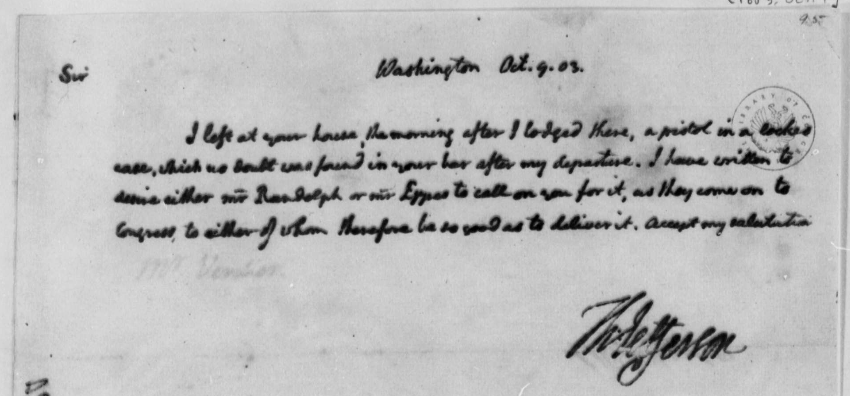 95
Sir
Washington Oct. 9. 03.
I left at your house, the morning after I lodged there, a pistol in a locked
case, which no doubt was found in your bar after my departure. I have written to
desire either mr Randolph or mr Eppes to call on you for it, as they come on to
Congress, to either of whom therefore be so good as to deliver it. Accept my salutations
Mr. Verdier.
Th: Jefferson